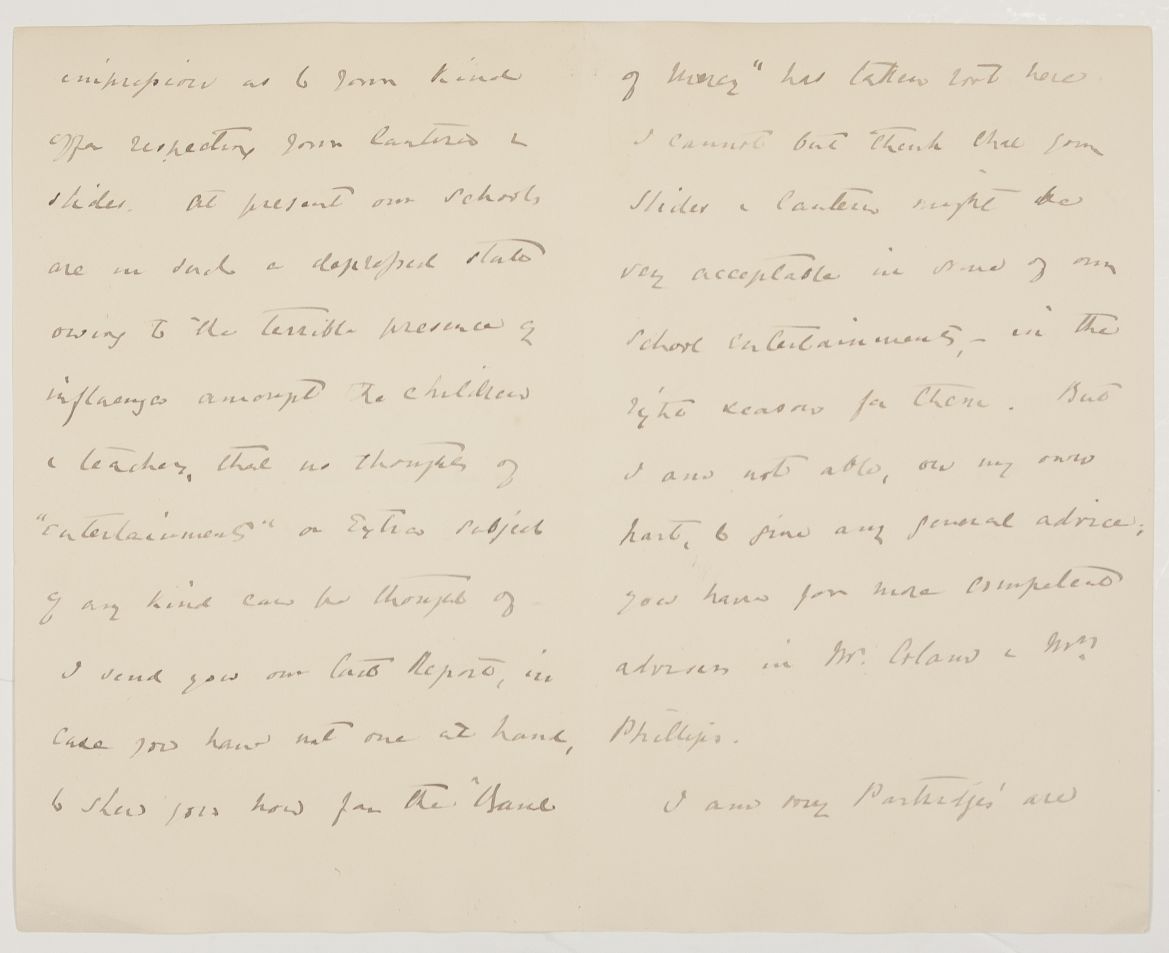 impression as to your kind
offer respecting your lantern &
slides. At present our schools
are in such a depressed state
owing to the terrible presence of
influenza amongst the children
& teachers, that no thoughts of
"entertainments" or Extra subject
of any kind can be thought of
I send you our last Report, in
case you have not one at hand,
to shew you how far the "Band
of Mercy" has taken root here
I cannot but think that your
slides & lantern might be
very acceptable in some of our
school entertainments, - in the
right season for them. But
I am not able, on my own
part, to give any general advice;
you have far more competent
advisers in Mr. Colam & Mrs
Phillips.
I am sorry Partridges are